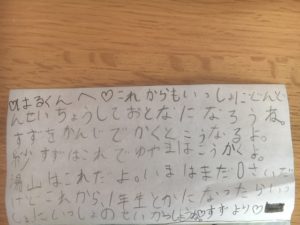 はるくんへ♡これからもいっしょにどんど
んせいちょうしておとなになろうね。
すずをかんじでかくとこうなるよ。
すずはこれでゆやまはこうかくよ。
湯山はこれだよ。いまはまだ0さいだ
けどこれから1年生とかになったらいっ
しょにいっしょのせいかつしようね♡すずより♡